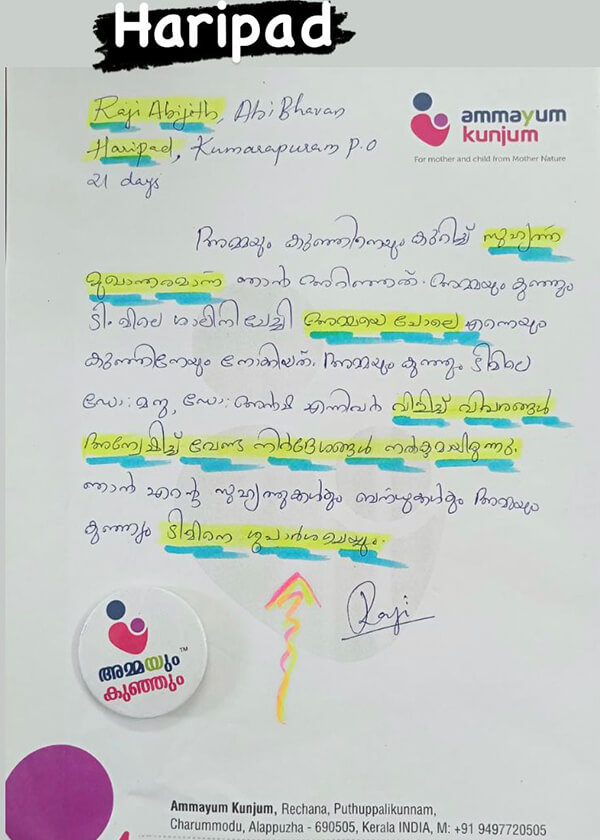 Haripad
Raji Abijith, Abi Bhavan
Haripad, Kumarapuram P.O
21 days
ammayum
kunjum
For mother and child from Mother Nature
അമ്മയും കുഞ്ഞിനെയും കുറിച്ച് സുഹൃത്ത്
മുഖാന്തരമാണ് ഞാൻ അറിഞ്ഞത്. അമ്മയും കുഞ്ഞും
ടീംമിലെ ശാലിനി ചേച്ചി അമ്മയെ പോലെ എന്നെയും
കുഞ്ഞിനേയും നോക്കിയത്. അമ്മയും കുഞ്ഞും ടീമിലെ
ഡോ: മനു, ഡോ: എന്നിവർ വിളിച്ച് വിവരങ്ങൾ
അന്വേഷിച്ച് വേണ്ട നിർദ്ദേശങ്ങൾ നൽകുമായിരുന്നു.
ഞാൻ എന്റെ സുഹൃത്തുക്കൾക്കും ബന്ധുക്കൾക്കും അമ്മയും
കുഞ്ഞും ടീമിനെ ശുപാർശചെയ്യും.
Raji
അമ്മയും TM
കുഞ്ഞും
Ammayum Kunjum, Rechana, Puthuppalikunnam,
Charummodu, Alappuzha - 690505, Kerala INDIA, M: +91 9497720505